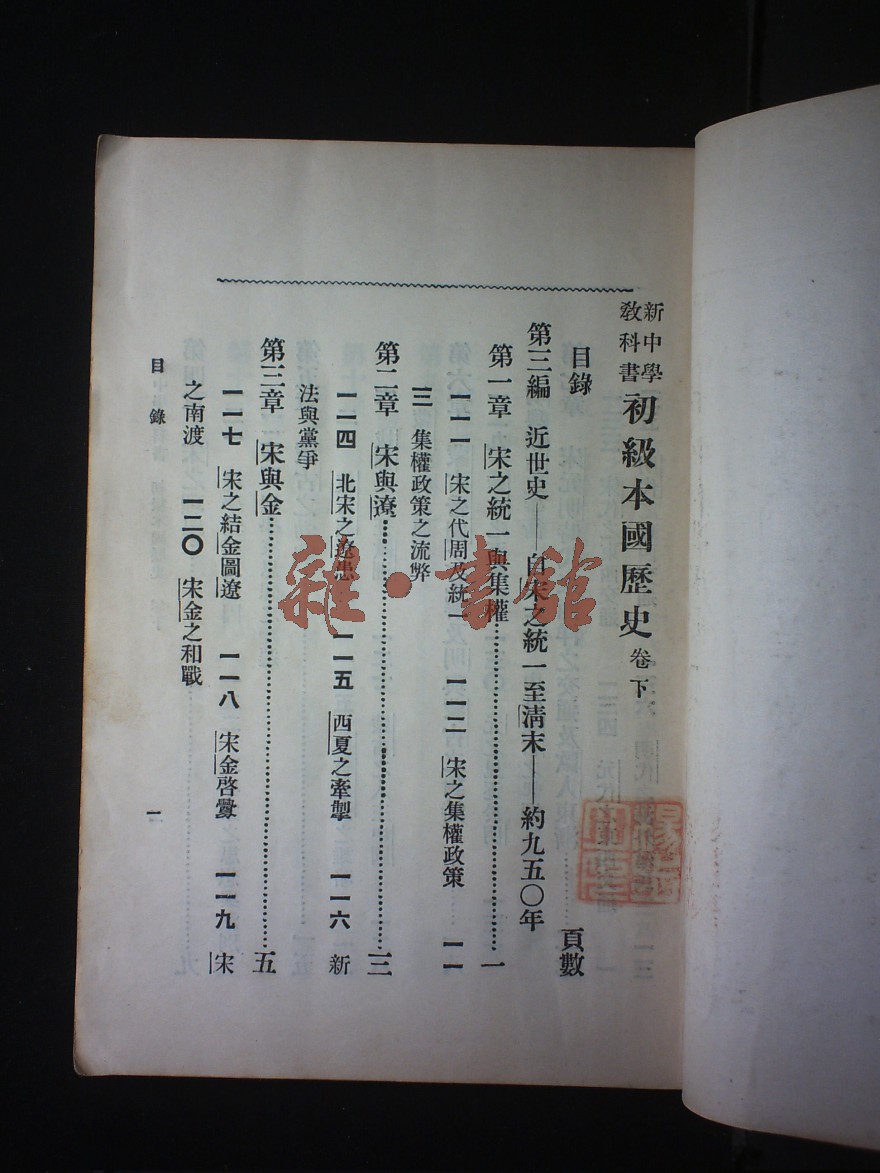 新中學
教科書
初級本國歷史 卷下
目錄 頁數
第三編 近世史——自宋之統一至清末——約九五〇年
第一章 宋之統一與集權……一
一一一 宋之代周及統一 一一二 宋之集權政策 一一
三 集權政策之流弊
第二章 宋與遼……三
一一四 北宋之遼患 一一五 西夏之牽掣 一一六 新
法與黨爭
第三章 宋與金……五
一一七 宋之結金圖遼 一一八 宋金啓釁 一一九 宋
之南渡 一二〇 宋金之和戰
目錄 一
雜·書館